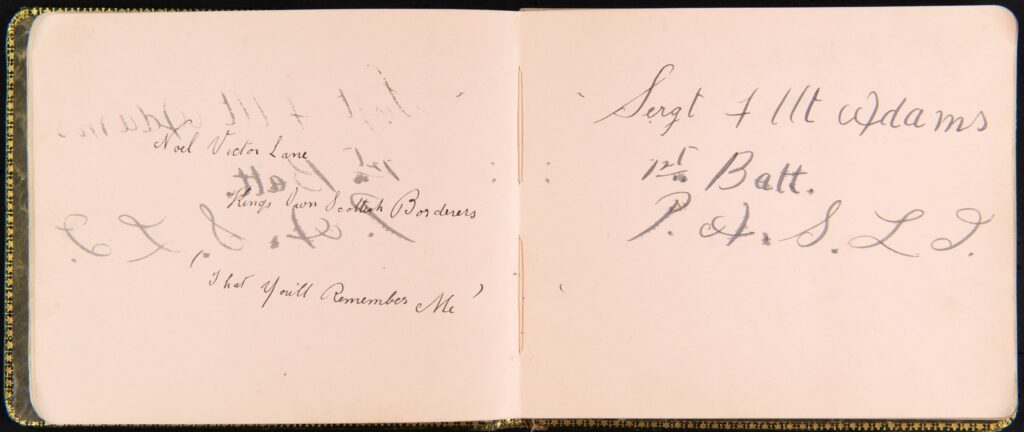 Noel Victor Lane
Kings Own Scottish Borderers
("That You'll Remember Me')
Sergt Adams
1st Batt.
P. A. S. L I.